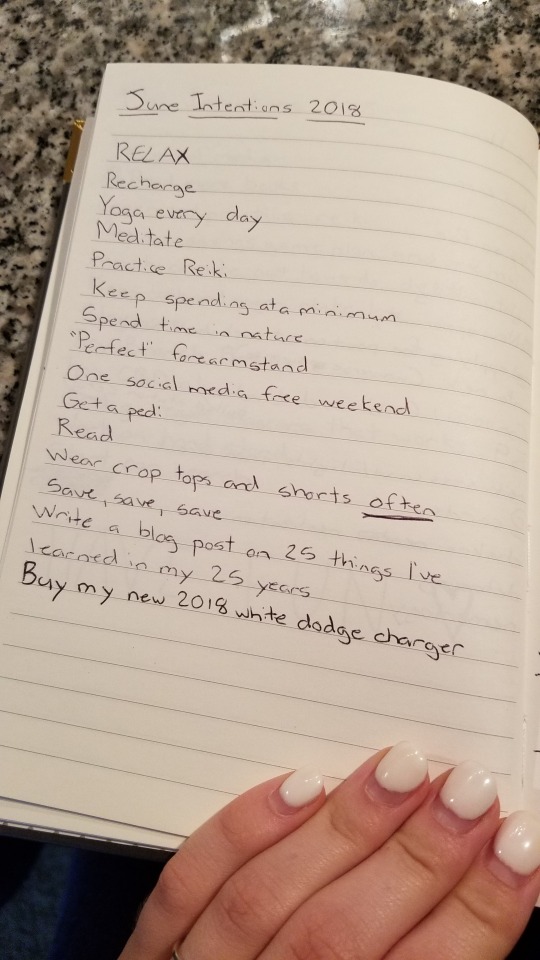 June Intentions 2018
RELAX
Recharge
Yoga every day
Meditate
Practice Reiki
Keep spending at a minimum
Spend time in nature
"Perfect" forearmstand
One social media free weekend
Get a pedi
Read
Wear crop tops and shorts often
Save, save, save
Write a blog post on 25 things I've
learned in my 25 years
Buy my new 2018 white dodge charger